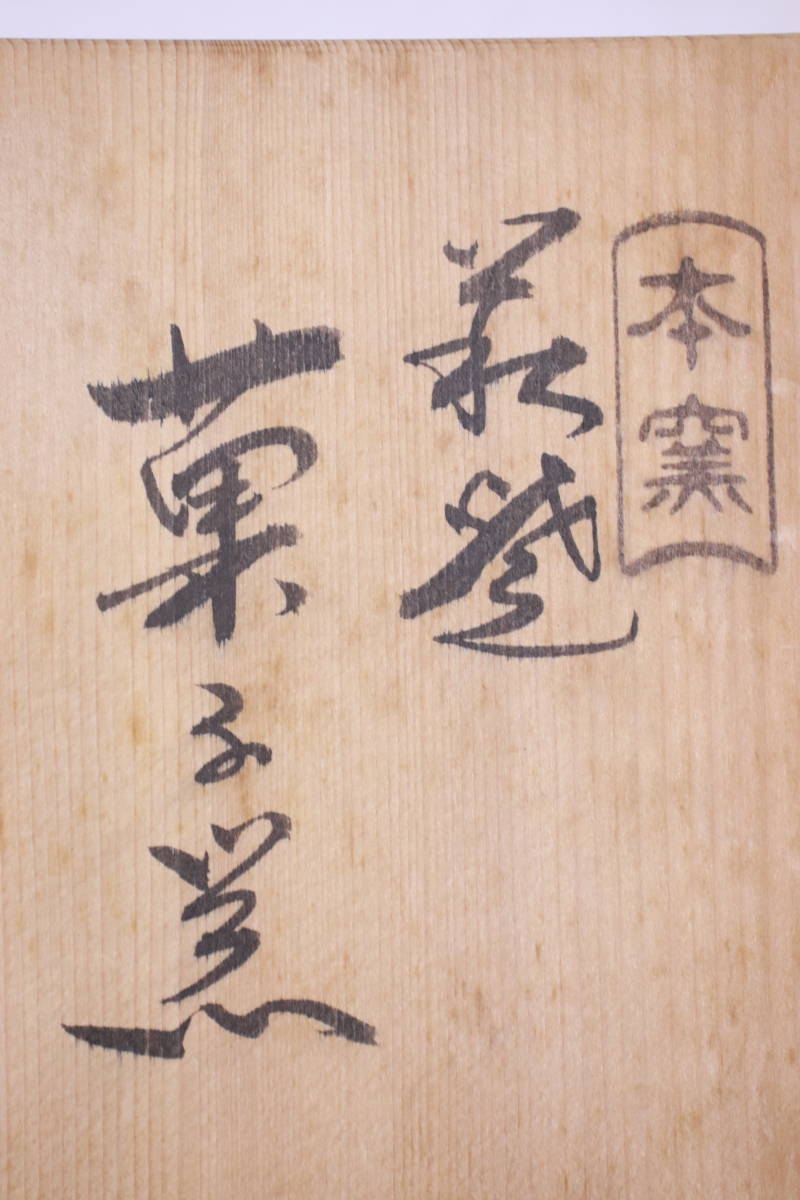 本窯
萩焼
菓子器